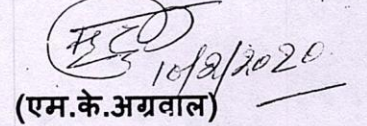 10/2/2020
(एम.के.अग्रवाल)